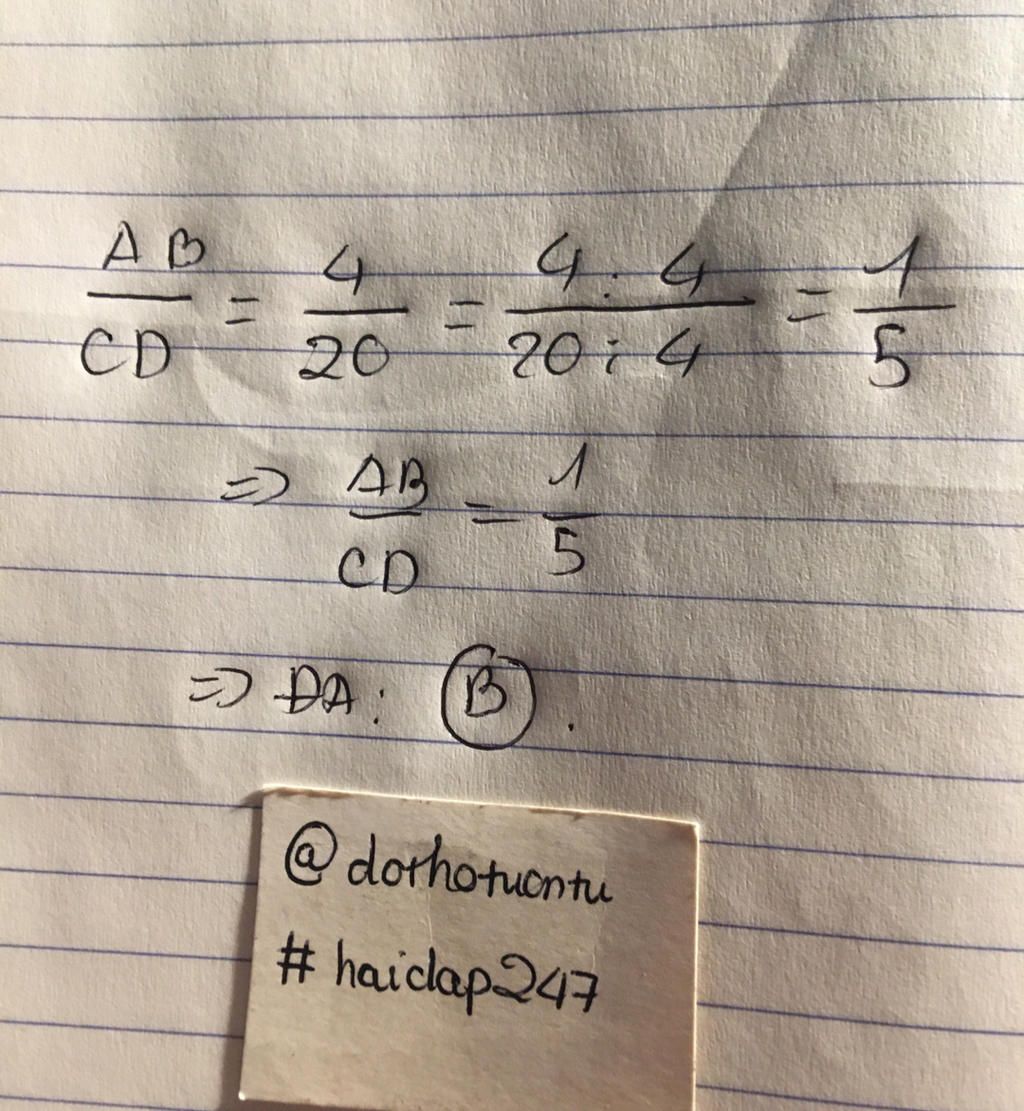 AB/CD = 4/20 = 4 : 4/20 : 4 = 1/5
=> AB/CD = 1/5
=> ĐA: B.
@dorhotuontu
# haiclap247